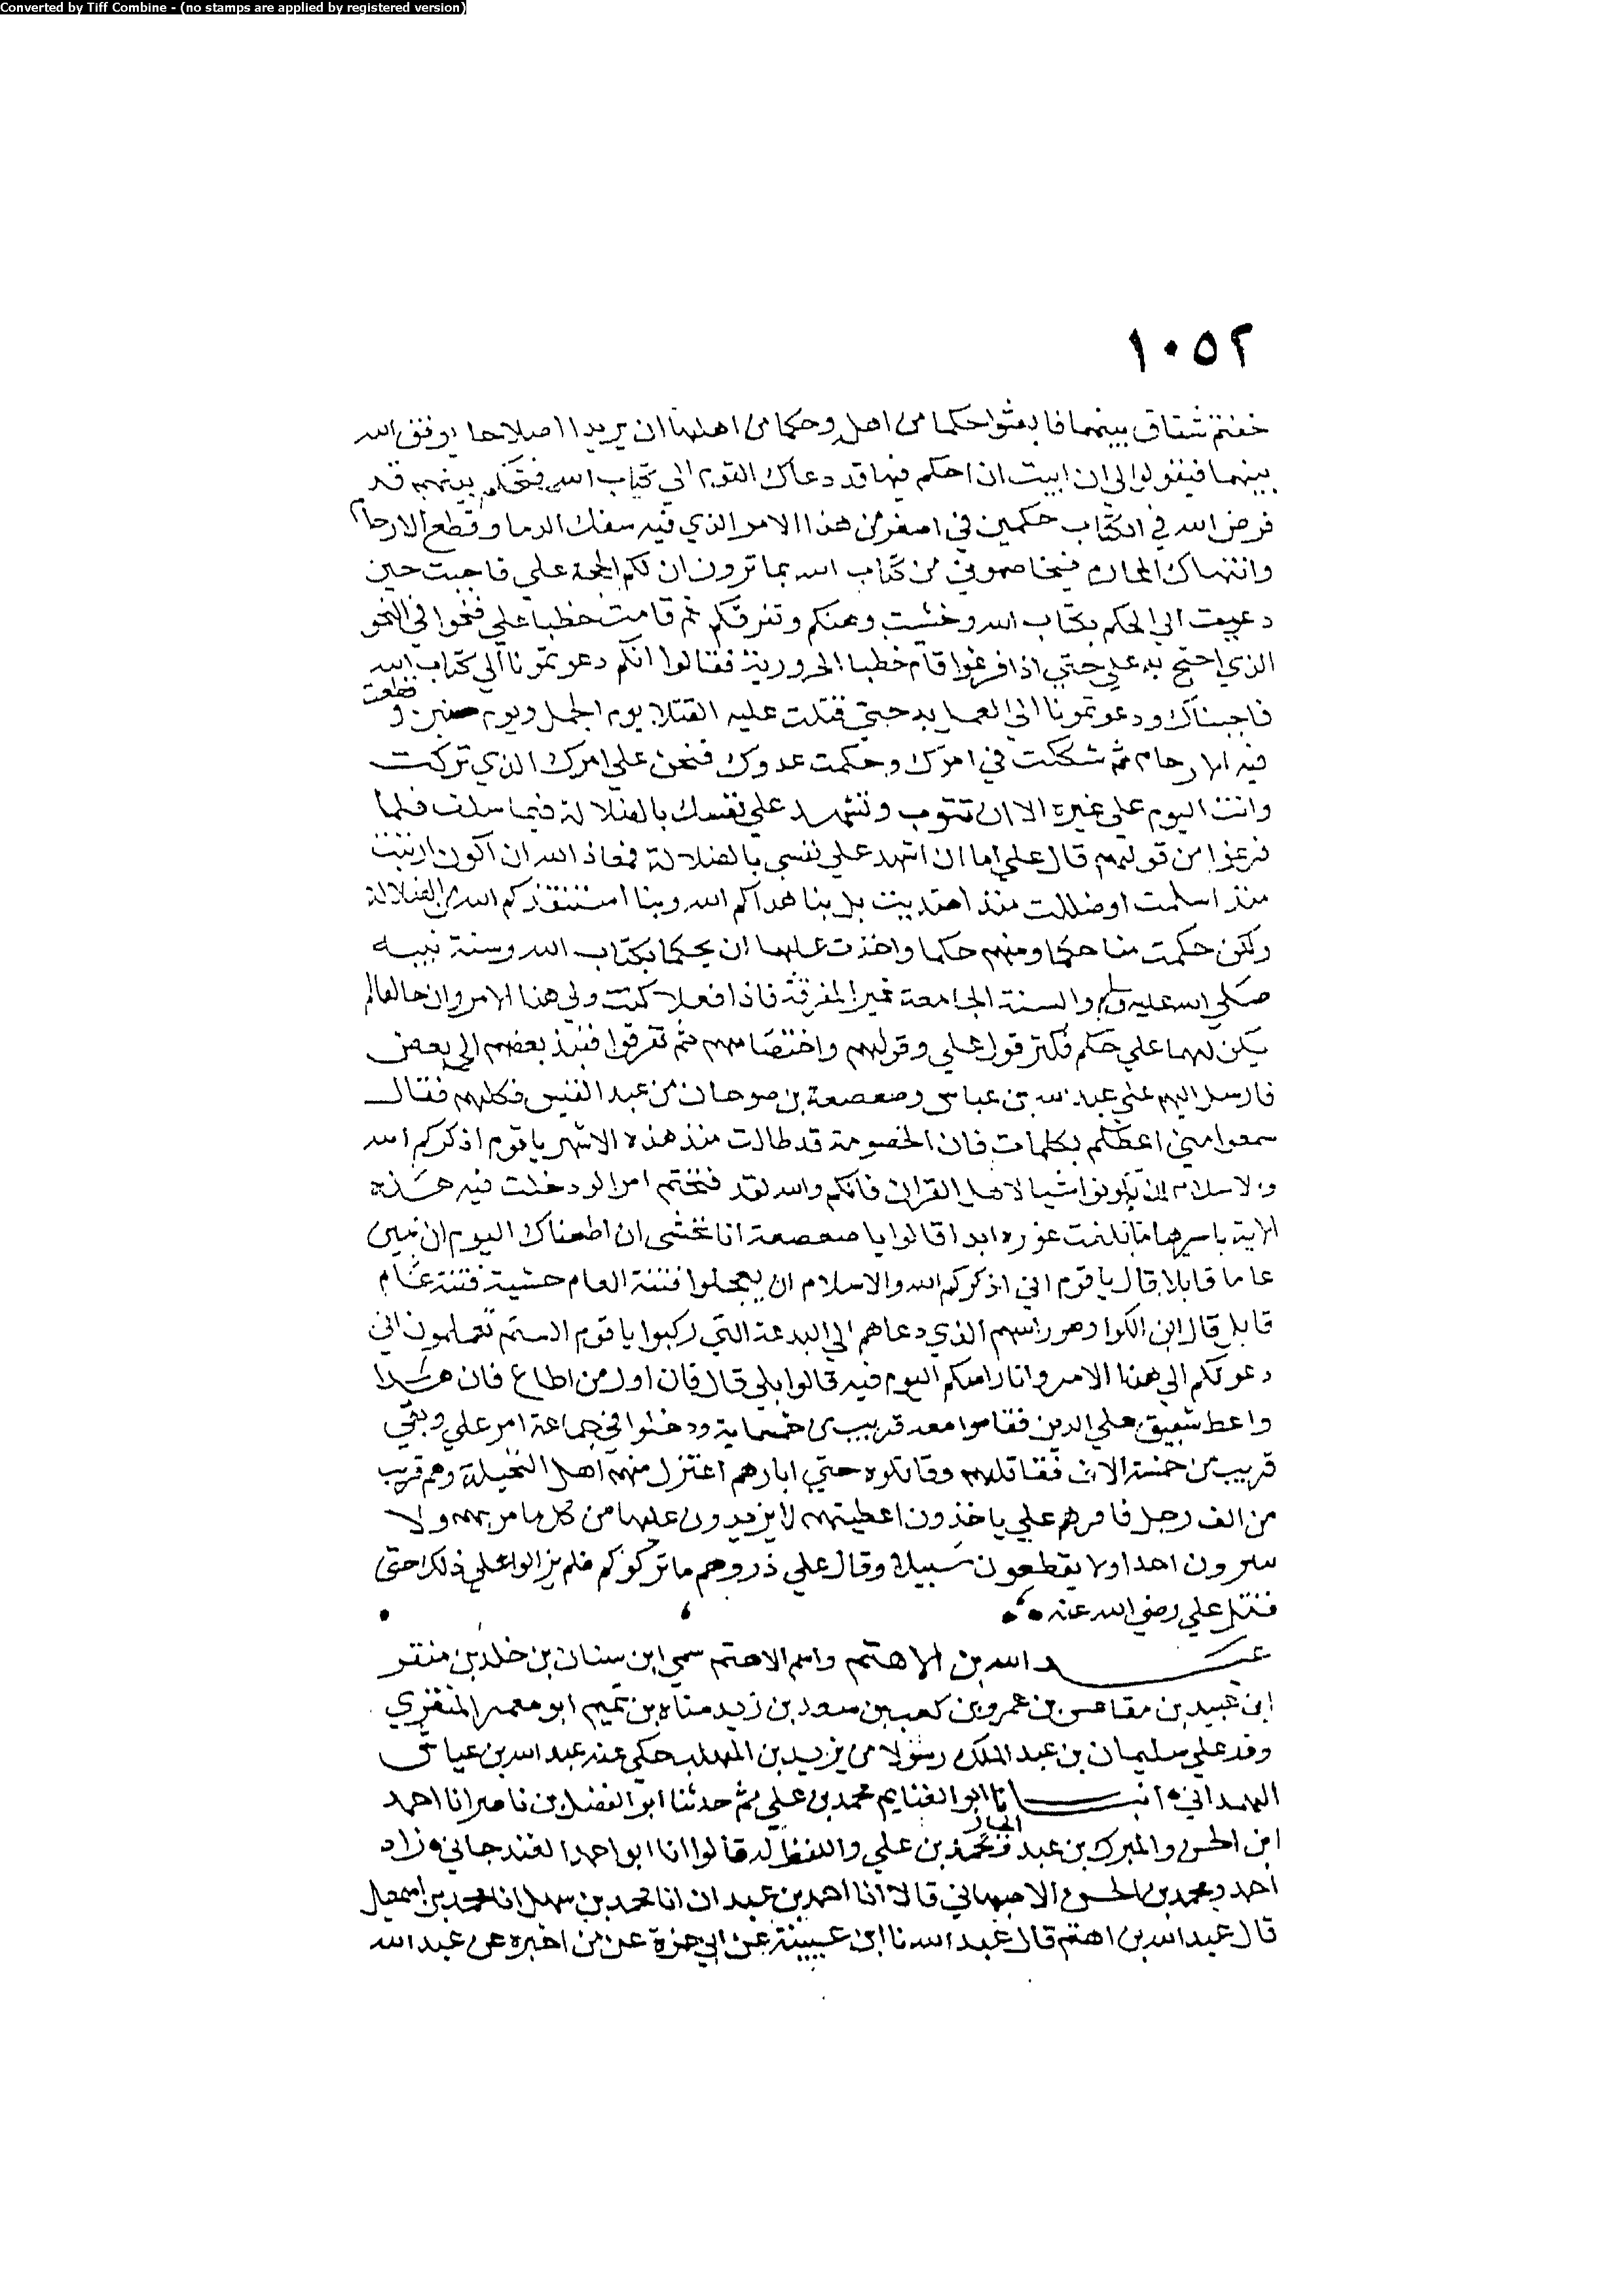 Converted by Tiff Combine - (no stamps are applied by registered version)
١٠٥٢
خفتم شقاق بينهما فابعثوا حكما من اهله وحكما من اهلها ان يريدا اصلاحا يوفق الله
بينهما فيقولوا لي ان ابيت ان احكم فيها قد دعاك القوم الي كتاب الله فتحكم بينهم قد
فرض الله في الكتاب حكمين في اصغر من هذا الامر الذي فيه سفك الدما وقطع الارحام
وانتهاك المحارم فيخاصموني من كتاب الله بما ترون ان لكم الحجة علي فاجبت حين
دعيت الي الحكم بكتاب الله وخشيت وهنكم وتفرقكم ثم قامت خطبا علي فنحوا في النحو
الذي احتج به علي حتي اذا فرغوا قام خطبا الحرورية فقالوا انكم دعوتمونا الي كتاب الله
فاجبناك ودعوتمونا الي العمل به حتي قتلت عليه القتلا يوم الجمل ويوم صفين وقطعت
فيه الارحام ثم شككت في امرك وحكمت عدوك فنحن علي امرك الذي تركت
وانت اليوم علي غيره الا ان تتوب وتشهد علي نفسك بالضلالة فيما سلف فلما
فرغوا من قولهم قال علي اما ان اشهد علي نفسي بالضلالة فمعاذ الله ان اكون ارتبت
منذ اسلمت او ضللت منذ اهتديت بل بنا هداكم الله وبنا استنقذكم الله من الضلالة
ولكن حكمت منا حكما ومنهم حكما واخذت عليهما ان يحكما بكتاب الله وسنة نبيه
صلي الله عليه وسلم والسنة الجامعة غير المفرقة فاذا فعلا كنت ولي هذا الامر وان خالفا لم
يكن لهما علي حكم فكثر قول علي وقولهم واختصامهم ثم تفرقوا فنبذ بعضهم الي بعض
فارسل اليهم علي عبد الله بن عباس وصعصعة بن صوحان من عبد القيس فكلمهم فقال
سمعوا مني اعظكم بكلمات فان الخصومة قد طالت منذ هذه الاشهر يا قوم اذكركم الله
والاسلام ان تكونوا شيا لاهل القران فانكم والله لقد فتحتم امرا لو دخلت فيه هذه
الاية باسرها ما بلغت غوره ابدا قالوا يا صعصعة انا نخشي ان اطعناك اليوم ان نبين
عاما قابلا قال يا قوم اني اذكركم الله والاسلام ان تعجلوا فتنة العام خشية فتنة عام
قابل قال ابن الكوا وهو راسهم الذي دعاهم الي البدعة التي ركبوا يا قوم الستم تعلمون اني
دعوتكم الي هذا الامر وانا راسكم اليوم فيه قالوا بلي قال فان اول من اطاع فان هذا
واعظ شفيق علي الدين فقاموا معه قريب من خمسماية ودخلوا في جماعة امر علي وبقي
قريب من خمسة الاف فقاتلهم وقاتلوه حتي ابارهم اعتزل منهم اهل النخيلة وهم قريب
من الف رجل فامرهم علي ياخذون اعطيتهم لا يزيدون عليها من كل ما مر بهم ولا
احدا ولا يقطعون سبيلا وقال علي ذروهم ما تركوكم فلم يزالوا علي ذلك حتي
قتل علي رضي الله عنه
عبد الله بن الاهتم واسم الاهتم سمي ابن سنان بن خلد بن منقر
ابن عبيد بن مقاعس بن عمرو بن كعب بن سعد بن زيد مناه بن تميم ابو معمر المنقري
وفد علي سليمان بن عبد الملك رسولا من يزيد بن المهلب حكي عنه عبد الله بن عياش
الهمداني انبانا ابو الغنايم محمد بن علي ثم حدثنا ابو الفضل بن ناصر انا احمد
ابن الحسن والمبرك بن عبد الجبار ومحمد بن علي واللفظ له قالوا انا ابو احمد الغندجاني زاد
احمد ومحمد بن الحسن الاصبهاني قالا انا احمد بن عبدان انا محمد بن سهل انا محمد بن اسمعيل
قال عبد الله بن اهتم قال عبد الله نا ابن عيينة عن ابي حمزة عن من اخبره عن عبد الله